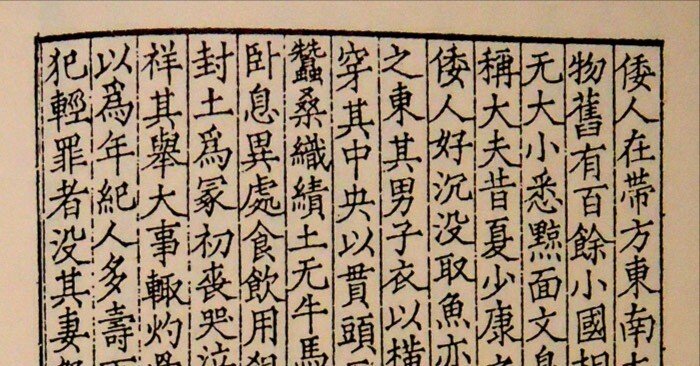 倭人在帶方東南
物舊有百餘小國相
无大小悉黥面文身
稱大夫昔夏少康之
倭人好沉没取魚亦
之東其男子衣以橫
穿其中央以貫頭
蠶桑織績土无牛馬
卧息異處食飲用
封土爲冢初喪哭泣
祥其舉大事輒灼骨
以爲年紀人多壽
犯輕罪者没其妻